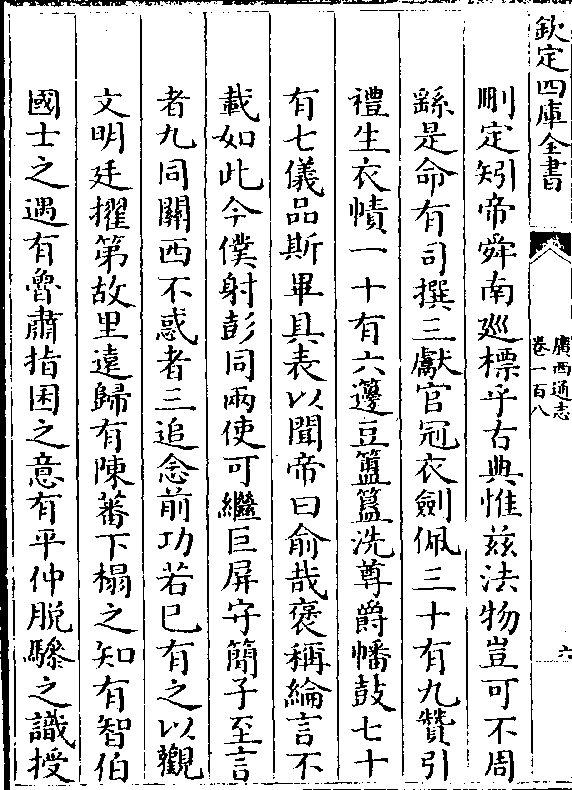 欽定四庫全書
廣西通志
卷一百八
六
刪定矧帝舜南廵標乎古典惟兹法物豈可不周
繇是命有司撰三獻官冠衣劍佩三十有九贊引
禮生衣幘一十有六籩豆簠簋洗尊爵幡鼓七十
有七儀品斯畢具表以聞帝曰俞哉褒稱綸言不
載如此今僕射彭同兩使可繼巨屏守簡子至言
者九同關西不惑者三追念前功若已有之以觀
文明廷擢第故里遠歸有陳蕃下榻之知有智伯
國士之遇有魯肅指囷之意有平仲脱驂之識授